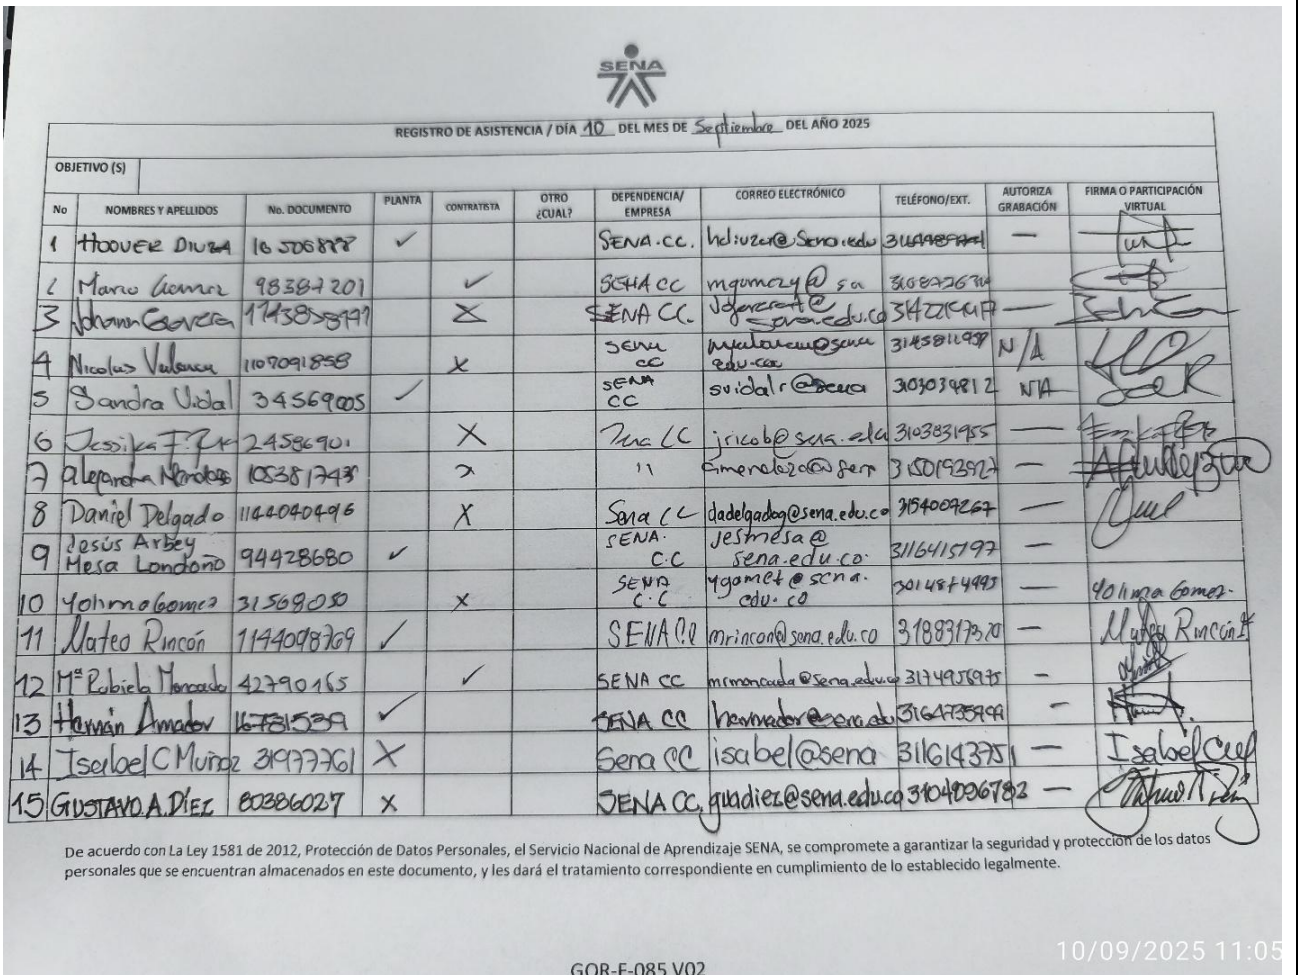 SENA
REGISTRO DE ASISTENCIA / DÍA 10 DEL MES DE Septiembre DEL AÑO 2025
OBJETIVO (S)
No NOMBRES Y APELLIDOS No. DOCUMENTO PLANTA CONTRATISTA OTRO ¿CUAL? DEPENDENCIA/ EMPRESA CORREO ELECTRÓNICO TELÉFONO/EXT. AUTORIZA GRABACIÓN FIRMA O PARTICIPACIÓN VIRTUAL
1 HOOVER DIUZA ✓ SENA.CC. —
2 Marco Gomez 98387201 ✓ SENA CC
3 Johann X SENA CC. —
4 Nicolas 1107091858 X SENA CC edu.co N/A
5 Sandra Vidal 34569005 ✓ SENA CC svidalr@sena 3103034812 N/A
6 Jessika 24586901 X CC jricob@sena.edu 3103831955 —
7 Alejandra Mendoza 1053817439 X " 3150193927 —
8 Daniel Delgado 1144040496 X Sena CC dadelgadog@sena.edu.co 3154009267 —
9 Jesús Arbey Mesa Londoño 94428680 ✓ SENA. C.C jesmesa@ sena.edu.co. 3116415197 —
10 Yolima Gomez 31569050 X SENA C.C ygomet@sena. edu.co 3014874995 — Yolima Gomez.
11 Mateo Rincón 1144098769 ✓ SENA CC mrincon@sena.edu.co 3188317370 — Mateo Rincón
12 Mª Rubiela Moncada 42790165 ✓ SENA CC mrmoncada@sena.edu.co 3174956975 —
13 Hernán Amador 16781539 ✓ SENA CC 3164735999 —
14 Isabel C Muñoz 31977761 X Sena CC isabel@sena 3116143751 — Isabel
15 GUSTAVO.A.DÍEZ 80386027 X SENA CC. guadiez@sena.edu.co 3104096782 —
De acuerdo con La Ley 1581 de 2012, Protección de Datos Personales, el Servicio Nacional de Aprendizaje SENA, se compromete a garantizar la seguridad y protección de los datos
personales que se encuentran almacenados en este documento, y les dará el tratamiento correspondiente en cumplimiento de lo establecido legalmente.
GOR-F-085 V02
10/09/2025 11:05